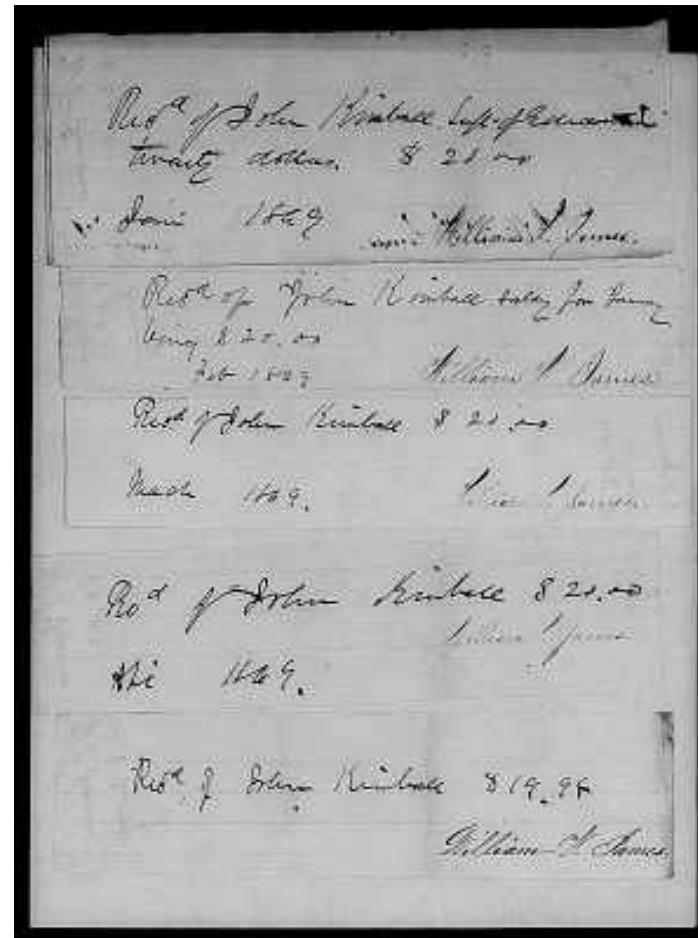 Recd of John Kimball Supt. of Education
twenty dollars. $ 20.00
1869 William F. James.
Recd of John Kimball for
$ 20.00
Feb 1869 William F. James
Recd of John Kimball $ 20.00
March 1869. William F. James
Recd of John Kimball $ 20.00
William F. James
1869.
Recd of John Kimball $ 19.98
William F. James